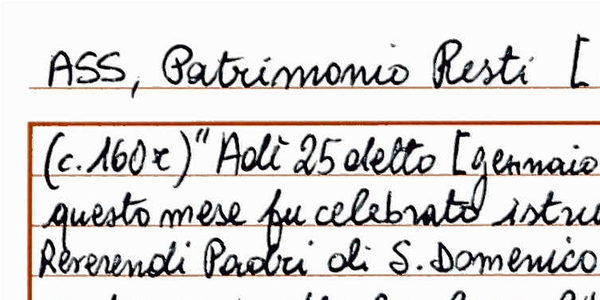 ASS, Patrimonio Resti [
(c. 160r) " Adì 25 detto [gennaio
questo mese fu celebrato istru
Reverendi Padri di S. Domenico